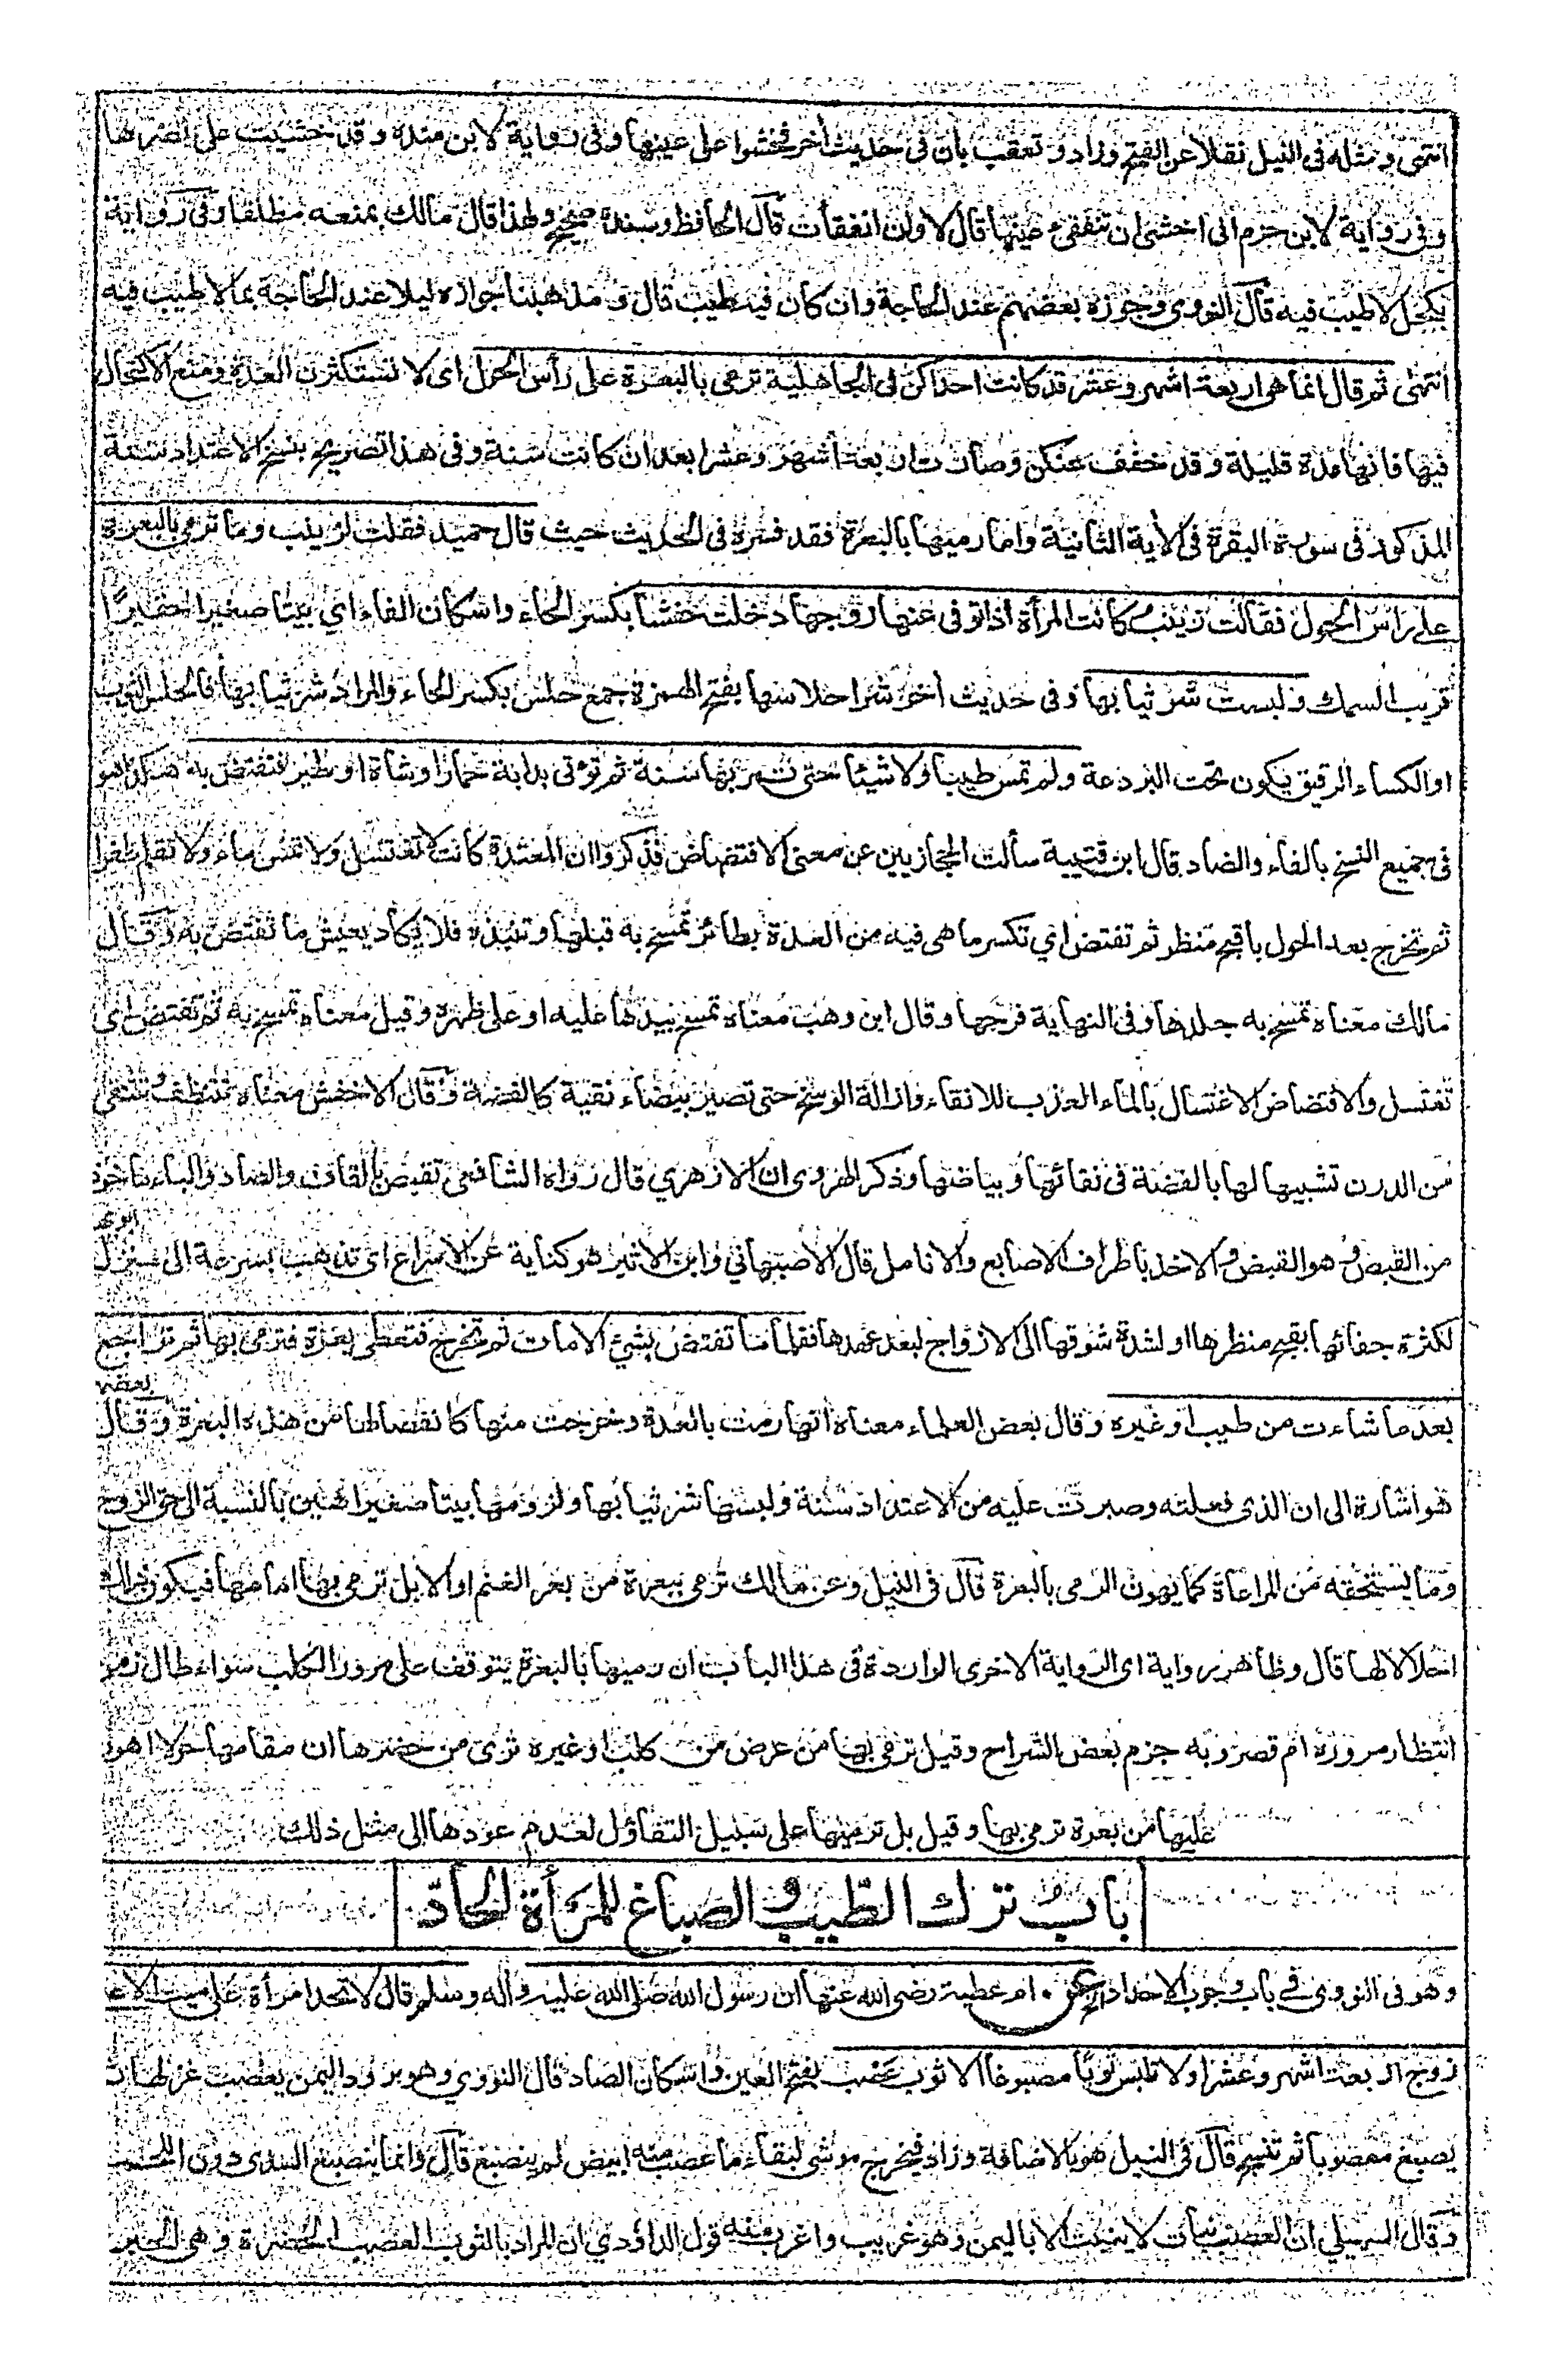 انتهى ومثله فى النيل نقلا عن الفتح وزاد وتعقب بأن فى حديث أخر فخشوا على عينها وفى رواية لابن منده وقد خشيت على بصرها
وفى رواية لابن حزم انى اخشى ان تنفقئ عينها قال لا ولن انفقأت قال الحافظ وسنده صحيح ولهذا قال مالك بمنعه مطلقا وفى رواية
يكحل لا طيب فيه قال النووى وجوزه بعضهم عند الحاجة وان كان فيه طيب قال ومذهبنا جوازه ليلا عند الحاجة بما لا طيب فيه
انتهى ثم قال انما هى اربعة اشهر وعشر قد كانت احداكن فى الجاهلية ترمى بالبعرة على رأس الحول اى لا تستكثرن العدة ومنع الاكتحال
فيها فانها مدة قليلة وقد خفف عنكن وصارت اربعة أشهر وعشرا بعد ان كانت سنة وفى هذا تصريح بنسخ الاعتداد سنة
المذكور فى سورة البقرة فى الأية الثانية واما رميها بالبعرة فقد فسره فى الحديث حيث قال حميد فقلت لزينب وما ترمى بالبعرة
على رأس الحول فقالت زينب كانت المرأة اذا توفى عنها زوجها دخلت حفشا بكسر الحاء واسكان الفاء اي بيتا صغيرا حقيرًا
قريب السمك ولبست شر ثيابها وفى حديث أخر شر احلاسها بفتح الهمزة جمع حلس بكسر الحاء والمراد شر ثيابها فالحلس الثوب
او الكساء الرقيق يكون تحت البردعة ولم تمس طيبا ولا شيئا حتى تمر بها سنة ثم تؤتى بدابة حمار او شاة او طير فتفتض به هكذا هو
فى جميع النسخ بالفاء والضاد قال ابن قتيبة سألت الحجازيين عن معنى الافتضاض فذكروا ان المعتدة كانت لا تغتسل ولا تمس ماء ولا تقلم ظفرا
ثم تخرج بعد الحول باقبح منظر ثم تفتض اي تكسر ما هى فيه من العدة بطائر تمسح به قبلها وتنبذه فلا يكاد يعيش ما تفتض به وقال
مالك معناه تمسح به جلدها وفى النهاية فرجها وقال ابن وهب معناه تمسح بيدها عليه او على ظهره وقيل معناه تمسح به ثم تفتض اى
تغتسل والافتضاض الاغتسال بالماء العذب للانقاء وازالة الوسخ حتى تصير بيضاء نقية كالفضة وقال الاخفش معناه تتنظف وتنتقى
من الدرن تشبيها لها بالفضة فى نقائها وبياضها وذكر الهروى ان الازهري قال رواه الشافعى تقبص بالقاف والصاد والباء ماخوذ
من القبض وهو القبض والاخذ باطراف الاصابع والانامل قال الاصبهاني وابن الاثير هو كناية عن الاسراع اى تذهب بسرعة الى منزل ابويها
لكثرة جفائها بقبح منظرها او لشدة شوقها الى الازواج لبعد عهدها فقلما تفتض بشئ الا مات ثم تخرج فتعطى بعرة فترمى بها ثم تراجع
بعد ما شاءت من طيب او غيره وقال بعض العلماء معناه انها رمت بالعدة وخرجت منها كانفصالها من هذه البعرة وقال بعضهم
هو اشارة الى ان الذى فعلته وصبرت عليه من الاعتداد سنة ولبسها شر ثيابها ولزومها بيتا صغيرا هين بالنسبة الى حق الزوج
وما يستحقه من المراعاة كما يهون الرمى بالبعرة قال فى النيل وعن مالك ترمى ببعرة من بعر الغنم او الابل ترمى بها امامها فيكون ذلك
احلالا لها قال وظاهر رواية اى الرواية الاخرى الواردة فى هذا الباب ان رميها بالبعرة يتوقف على مرور الكلب سواء طال زمن
انتظار مروره ام قصر وبه جزم بعض الشراح وقيل ترمى بها من عرض من كلب او غيره ترى من حضرها ان مقامها حولا اهون
عليها من بعرة ترمى بها وقيل بل ترميها على سبيل التفاؤل لعدم عودها الى مثل ذلك
باب ترك الطيب والصباغ للمرأة الحادّ
وهو فى النووى فى باب وجوب الاحداد الخ عن ام عطية رضى الله عنها ان رسول الله صلى الله عليه وآله وسلم قال لا تحد امرأة على ميت الا على
زوج اربعة اشهر وعشرا ولا تلبس ثوبا مصبوغا الا ثوب عصب بفتح العين واسكان الصاد قال النووي وهو برود اليمن يعصب غزلها ثم
يصبغ معصوبا ثم تنسج قال فى النيل هو بالاضافة وزاد فيخرج موشى لبقاء ما عصب منه ابيض لم ينصبغ قال وانما ينصبغ السدى دون اللحمة
وقال السهيلي ان العصب نبات لا ينبت الا باليمن وهو غريب واغرب منه قول الداؤدي ان المراد بالثوب العصب الخضرة وهى الحبرة